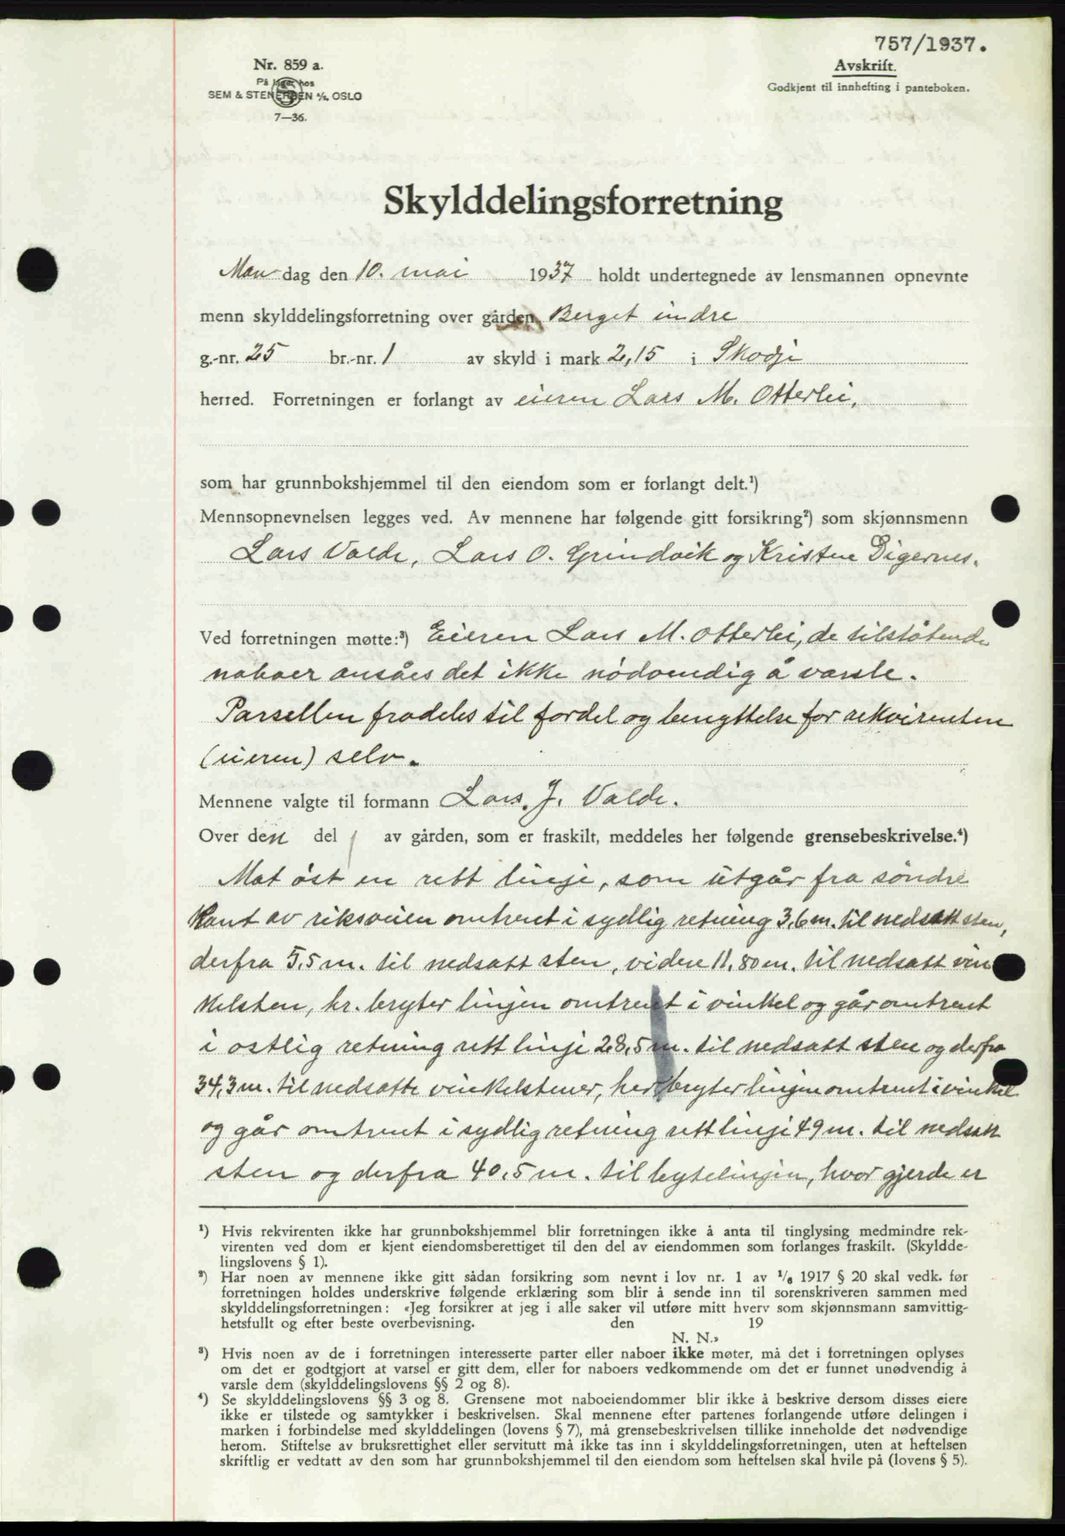 757/1937.
Nr. 859 a.
På lager hos
SEM & STENERSEN A/S, OSLO
7—36.
Avskrift.
Godkjent til innhefting i panteboken.
Skylddelingsforretning
Mandag den 10. mai 1937 holdt undertegnede av lensmannen opnevnte
menn skylddelingsforretning over gården Berget indre
g.-nr. 25 br.-nr. 1 av skyld i mark 2,15 i Skodje
herred. Forretningen er forlangt av eieren Lars M. Otterlei,
som har grunnbokshjemmel til den eiendom som er forlangt delt.¹)
Mennsopnevnelsen legges ved. Av mennene har følgende gitt forsikring²) som skjønnsmenn
Lars Valde, Lars O. Grindvik og Kristen Digernes.
Ved forretningen møtte:³) Eieren Lars M. Otterlei, de tilstøtende
naboer ansåes det ikke nödvendig å varsle.
Parsellen fradeles til fordel og benyttelse for rekvirenten
(eieren) selv.
Mennene valgte til formann Lars J. Valde.
Over den del av gården, som er fraskilt, meddeles her følgende grensebeskrivelse.⁴)
Mot öst en rett linje, som utgår fra söndre
kant av riksveien omtrent i sydlig retning 3,6 m. til nedsatt sten,
derfra 5,5 m. til nedsatt sten, videre 11,80 m. til nedsatt vin
kelsten, hr. bryter linjen omtrent i vinkel og går omtrent
i ostlig retning rett linje 28,5 m. til nedsatt sten og derfra
34,3 m. til nedsatte vinkelstener, her bryter linjen omtrent i vinkel
og går omtrent i sydlig retning rett linje 49 m. til nedsatt
sten og derfra 40,5 m. til bytelinjen, hvor gjerde er
¹) Hvis rekvirenten ikke har grunnbokshjemmel blir forretningen ikke å anta til tinglysing medmindre rek-
virenten ved dom er kjent eiendomsberettiget til den del av eiendommen som forlanges fraskilt. (Skyldde-
lingslovens § 1).
²) Har noen av mennene ikke gitt sådan forsikring som nevnt i lov nr. 1 av 1/6 1917 § 20 skal vedk. før
forretningen holdes underskrive følgende erklæring som blir å sende inn til sorenskriveren sammen med
skylddelingsforretningen: «Jeg forsikrer at jeg i alle saker vil utføre mitt hverv som skjønnsmann samvittig-
hetsfullt og efter beste overbevisning. den 19
N. N.»
³) Hvis noen av de i forretningen interesserte parter eller naboer ikke møter, må det i forretningen oplyses
om det er godtgjort at varsel er gitt dem, eller for naboers vedkommende om det er funnet unødvendig å
varsle dem (skylddelingslovens §§ 2 og 8).
⁴) Se skylddelingslovens §§ 3 og 8. Grensene mot naboeiendommer blir ikke å beskrive dersom disses eiere
ikke er tilstede og samtykker i beskrivelsen. Skal mennene efter partenes forlangende utføre delingen i
marken i forbindelse med skylddelingen (lovens § 7), må grensebeskrivelsen tillike inneholde det nødvendige
herom. Stiftelse av bruksrettighet eller servitutt må ikke tas inn i skylddelingsforretningen, uten at heftelsen
skriftlig er vedtatt av den som har grunnbokshjemmel til den eiendom som heftelsen skal hvile på (lovens § 5).